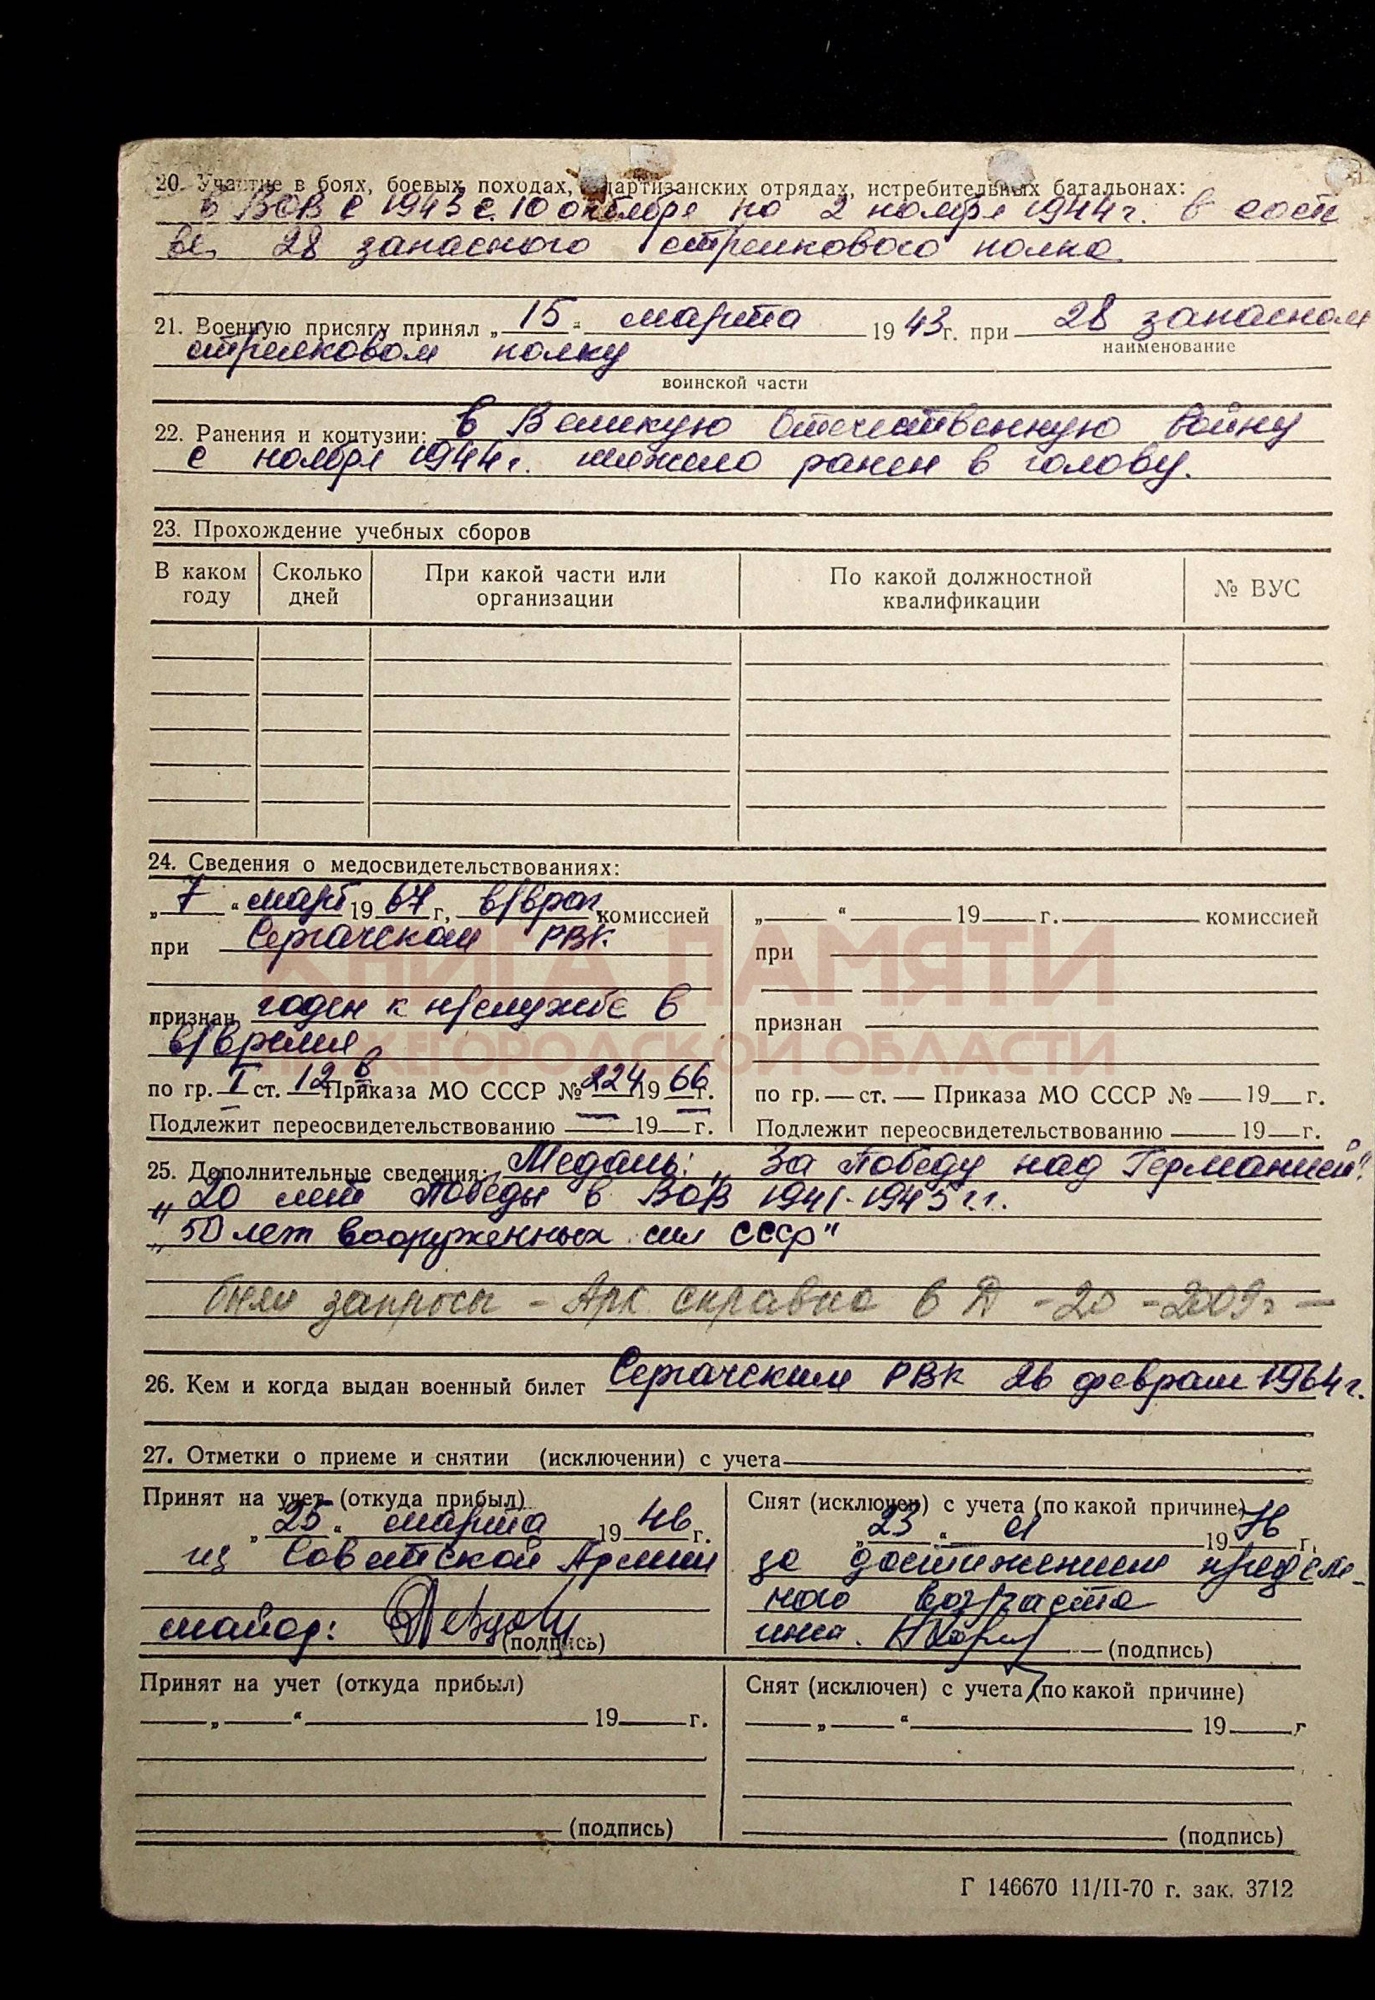 20. Участие в боях, боевых походах, партизанских отрядах, истребительных батальонах:
в ВОВ с 1943 с. 10 октября по 2 ноября 1944 г. в соста
ве 28 запасного стрелкового полка
21. Военную присягу принял „ 15 “ марта 1943 г. при 28 запасном
наименование
стрелковом полку
воинской части
22. Ранения и контузии: в Великую Отечественную войну
с ноября 1944 г. тяжело ранен в голову.
23. Прохождение учебных сборов
В каком году Сколько дней При какой части или организации По какой должностной квалификации № ВУС
24. Сведения о медосвидетельствованиях:
„ 7 “ март 1967 г, в/врач комиссией
при Сергачском РВК
признан годен к н/службе в
в/время
по гр. I ст. 12 в Приказа МО СССР № 224 1966 г.
Подлежит переосвидетельствованию — 19— г.
„ “ 19 г. комиссией
при
признан
по гр. — ст. — Приказа МО СССР № 19 г.
Подлежит переосвидетельствованию 19 г.
КНИГА ПАМЯТИ
НИЖЕГОРОДСКОЙ ОБЛАСТИ
25. Дополнительные сведения: Медаль: „За Победу над Германией".
„20 лет Победы в ВОВ 1941-1945 г.г.
„50 лет вооруженных сил СССР"
были запросы - Арх. справка в Д -20 -2009г —
26. Кем и когда выдан военный билет Сергачским РВК 26 февраля 1964 г.
27. Отметки о приеме и снятии (исключении) с учета
Принят на учет (откуда прибыл)
„ 25 “ марта 1946 г.
из Советской Армии
майор:
(подпись)
Снят (исключен) с учета (по какой причине)
„ 23 “ 01 1976 г.
за достижением предель-
ного возраста
инсп.
(подпись)
Принят на учет (откуда прибыл)
„ “ 19 г.
(подпись)
Снят (исключен) с учета (по какой причине)
„ “ 19 г
(подпись)
Г 146670 11/II-70 г. зак. 3712